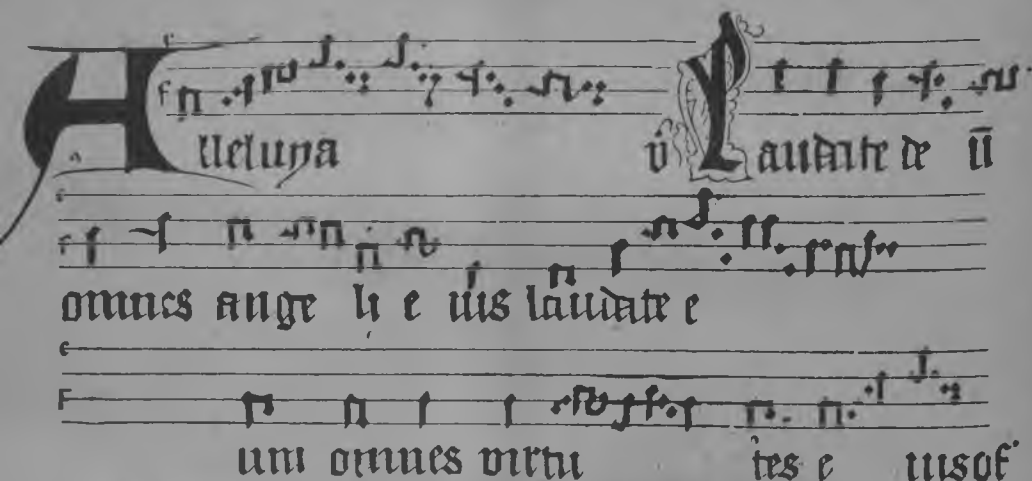 Alleluya v̂ Laudate de ūī
omnes ange li e ius laudate e
um omnes virtu tes e iusof